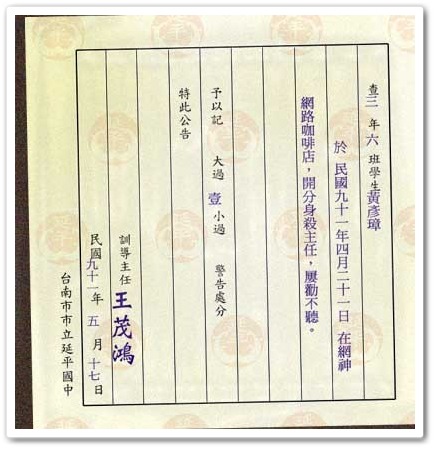 查三年六班學生黃彥璋
於 民國九十一年四月二十一日 在網神
網路咖啡店，開分身殺主任，屢勸不聽。
予以記 大過 壹 小過 警告處分
特此公告
訓導主任 王茂鴻
民國九十一年 五 月 十七 日
台南市市立延平國中